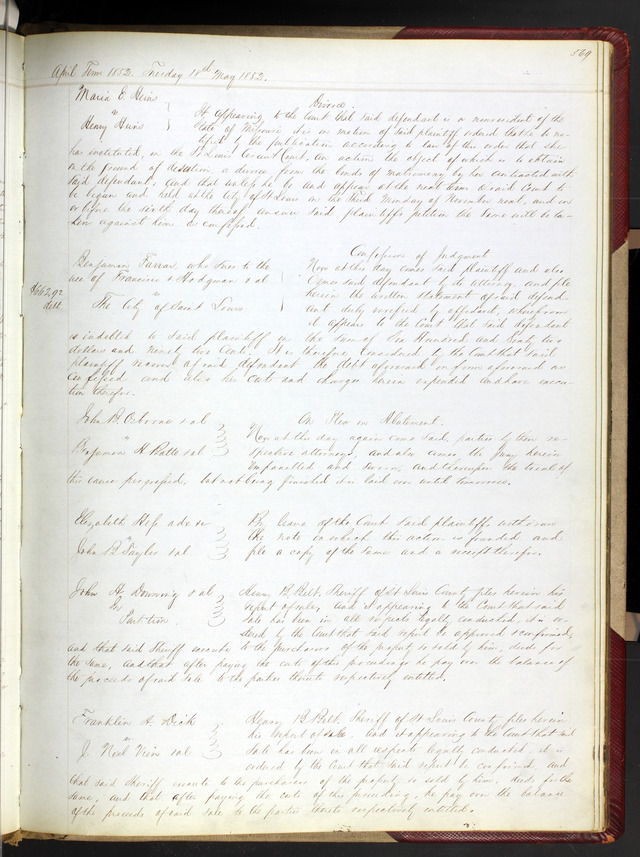 569
April Term 1852. Tuesday 18th May 1852.
Maria E. Heins
vs
Henry Heins
Divorce.
It appearing to the Court that said defendant is a nonresident of the
State of Missouri it is on motion of said plaintiff ordered that he be no-
tified by the publication according to law of this order that she
has instituted, in the St Louis Circuit Court, an action the object of which is to obtain
on the ground of desertion a divorce from the bonds of matrimony by her contracted with
said defendant; And that unless he be and appear at the next term of said Court to
be begun and held at the City of St Louis on the third Monday of November next, and on
or before the sixth day thereof answer said plaintiff's petition the same will be ta-
ken against him as confessed.
Benjamin Farrar, who sues to the
use of Francisco Hodgman & al
vs
The City of Saint Louis
$662.92
debt.
Confession of Judgment
Now at this day comes said plaintiff and also
comes said defendant by its attorney, and file
herein the written statement of said defend-
ant duly verified by affidavit, whereupon
it appears to the Court that said defendant
is indebted to said plaintiff in the sum of Six Hundred and Sixty two
dollars and ninety two cents. It is therefore considered by the Court that said
plaintiff recover of said defendant the debt aforesaid in form aforesaid as
confessed and also his costs and charges herein expended and have execu-
tion therefor.
John B. Osborne & al
vs
Benjamin H. Batte & al
On Plea in Abatement.
Now at this day again come said parties by their re-
spective attorneys, and also comes the Jury herein
impannelled and sworn, and thereupon the trial of
this cause progressed, but not being finished it is laid over until tomorrow.
Elizabeth Hefs
vs
John B. Sayles & al
By leave of the Court said plaintiffs withdraw
the note on which this action is founded and
file a copy of the same and a receipt therefor.
John H. Downing & al
In
Partition
Henry B. Belt, Sheriff of St Louis County files herein his
report of sales, and it appearing to the Court that said
sale has been in all respects legally conducted, it is or-
dered by the Court that said report be approved & confirmed,
and that said Sheriff execute to the purchasers of the property so sold by him, deeds for
the same, And that after paying the costs of this proceedings he pay over the balance of
the proceeds of said sale to the parties thereto respectively entitled.
Franklin A. Dick
vs
J. Neal Vein & al
Henry B. Belt, Sheriff of St Louis County files herein
his report of sale. And it appearing to the Court that said
sale has been in all respects legally conducted, it is
ordered by the Court that said report be confirmed, and
that said Sheriff execute to the purchasers of the property so sold by him, deeds for the
same, and that after paying the costs of this proceeding, he pay over the balance
of the proceeds of said sale to the parties thereto respectively entitled.